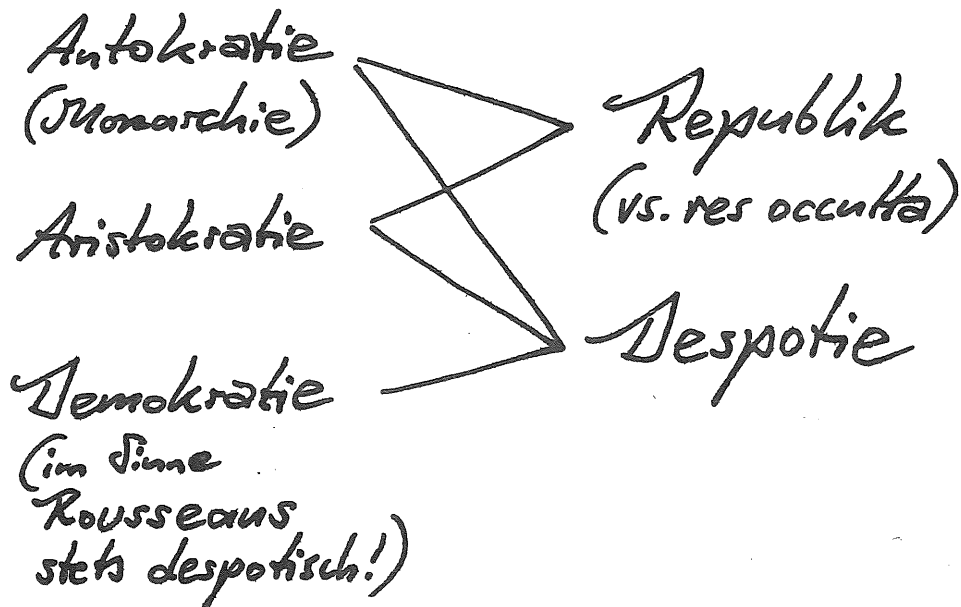 Autokratie
(Monarchie)
Aristokratie
Demokratie
(im Sinne
Rousseaus
stets despotisch!)
Republik
(vs. res occulta)
Despotie